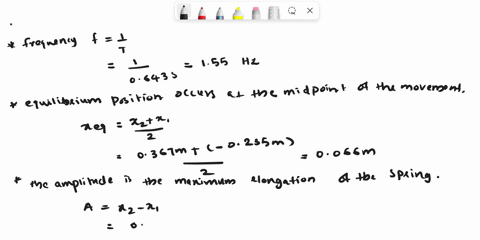 * frequency f = 1/T
= 1/0.643s = 1.55 Hz
* equilibrium position occurs at the midpoint of the movement.
xeq = (x2+x1)/2
= (0.367m + (-0.235m))/2 = 0.066m
* the amplitude is the maximum elongation of the spring.
A = x2-x1
= 0.